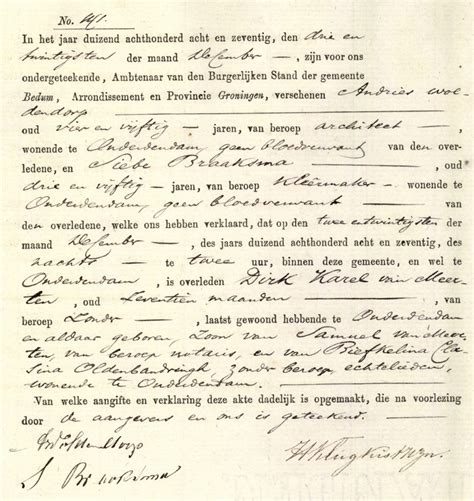 No. 141.
In het jaar duizend achthonderd acht en zeventig, den drie en
twintigsten der maand December, zijn voor ons
ondergeteekende, Ambtenaar van den Burgerlijken Stand der gemeente
Bedum, Arrondissement en Provincie Groningen, verschenen Andries wol
dendorp
oud vier en vijftig jaren, van beroep architect,
wonende te Onderdendam, geen bloedverwant van den over-
ledene, en Siebe Braaksma, oud
drie en vijftig jaren, van beroep Kleêrmaker wonende te
Onderdendam, geen bloedverwant van
den overledene, welke ons hebben verklaard, dat op den twee entwintigsten der
maand December, des jaars duizend achthonderd acht en zeventig, des
nachts te twee uur, binnen deze gemeente, en wel te
Onderdendam, is overleden Dirk Karel van Meer-
ten, oud zeventien maanden, van
beroep Zonder, laatst gewoond hebbende te Onderdendam
en aldaar geboren, Zoon van Samuel van Meer-
ten, van beroep notaris, en van Riefkelina Cla
sina Oldenbandringh, zonder beroep, echtelieden,
wonende te Onderdendam.
Van welke aangifte en verklaring deze akte dadelijk is opgemaakt, die na voorlezing
door de aangevers en ons is geteekend.
A Woldendorp
S Braaksma